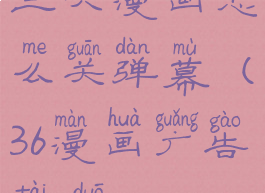 me guān dàn mù
么关弹幕(
màn huà guǎng gào
36漫画广告
tài duō